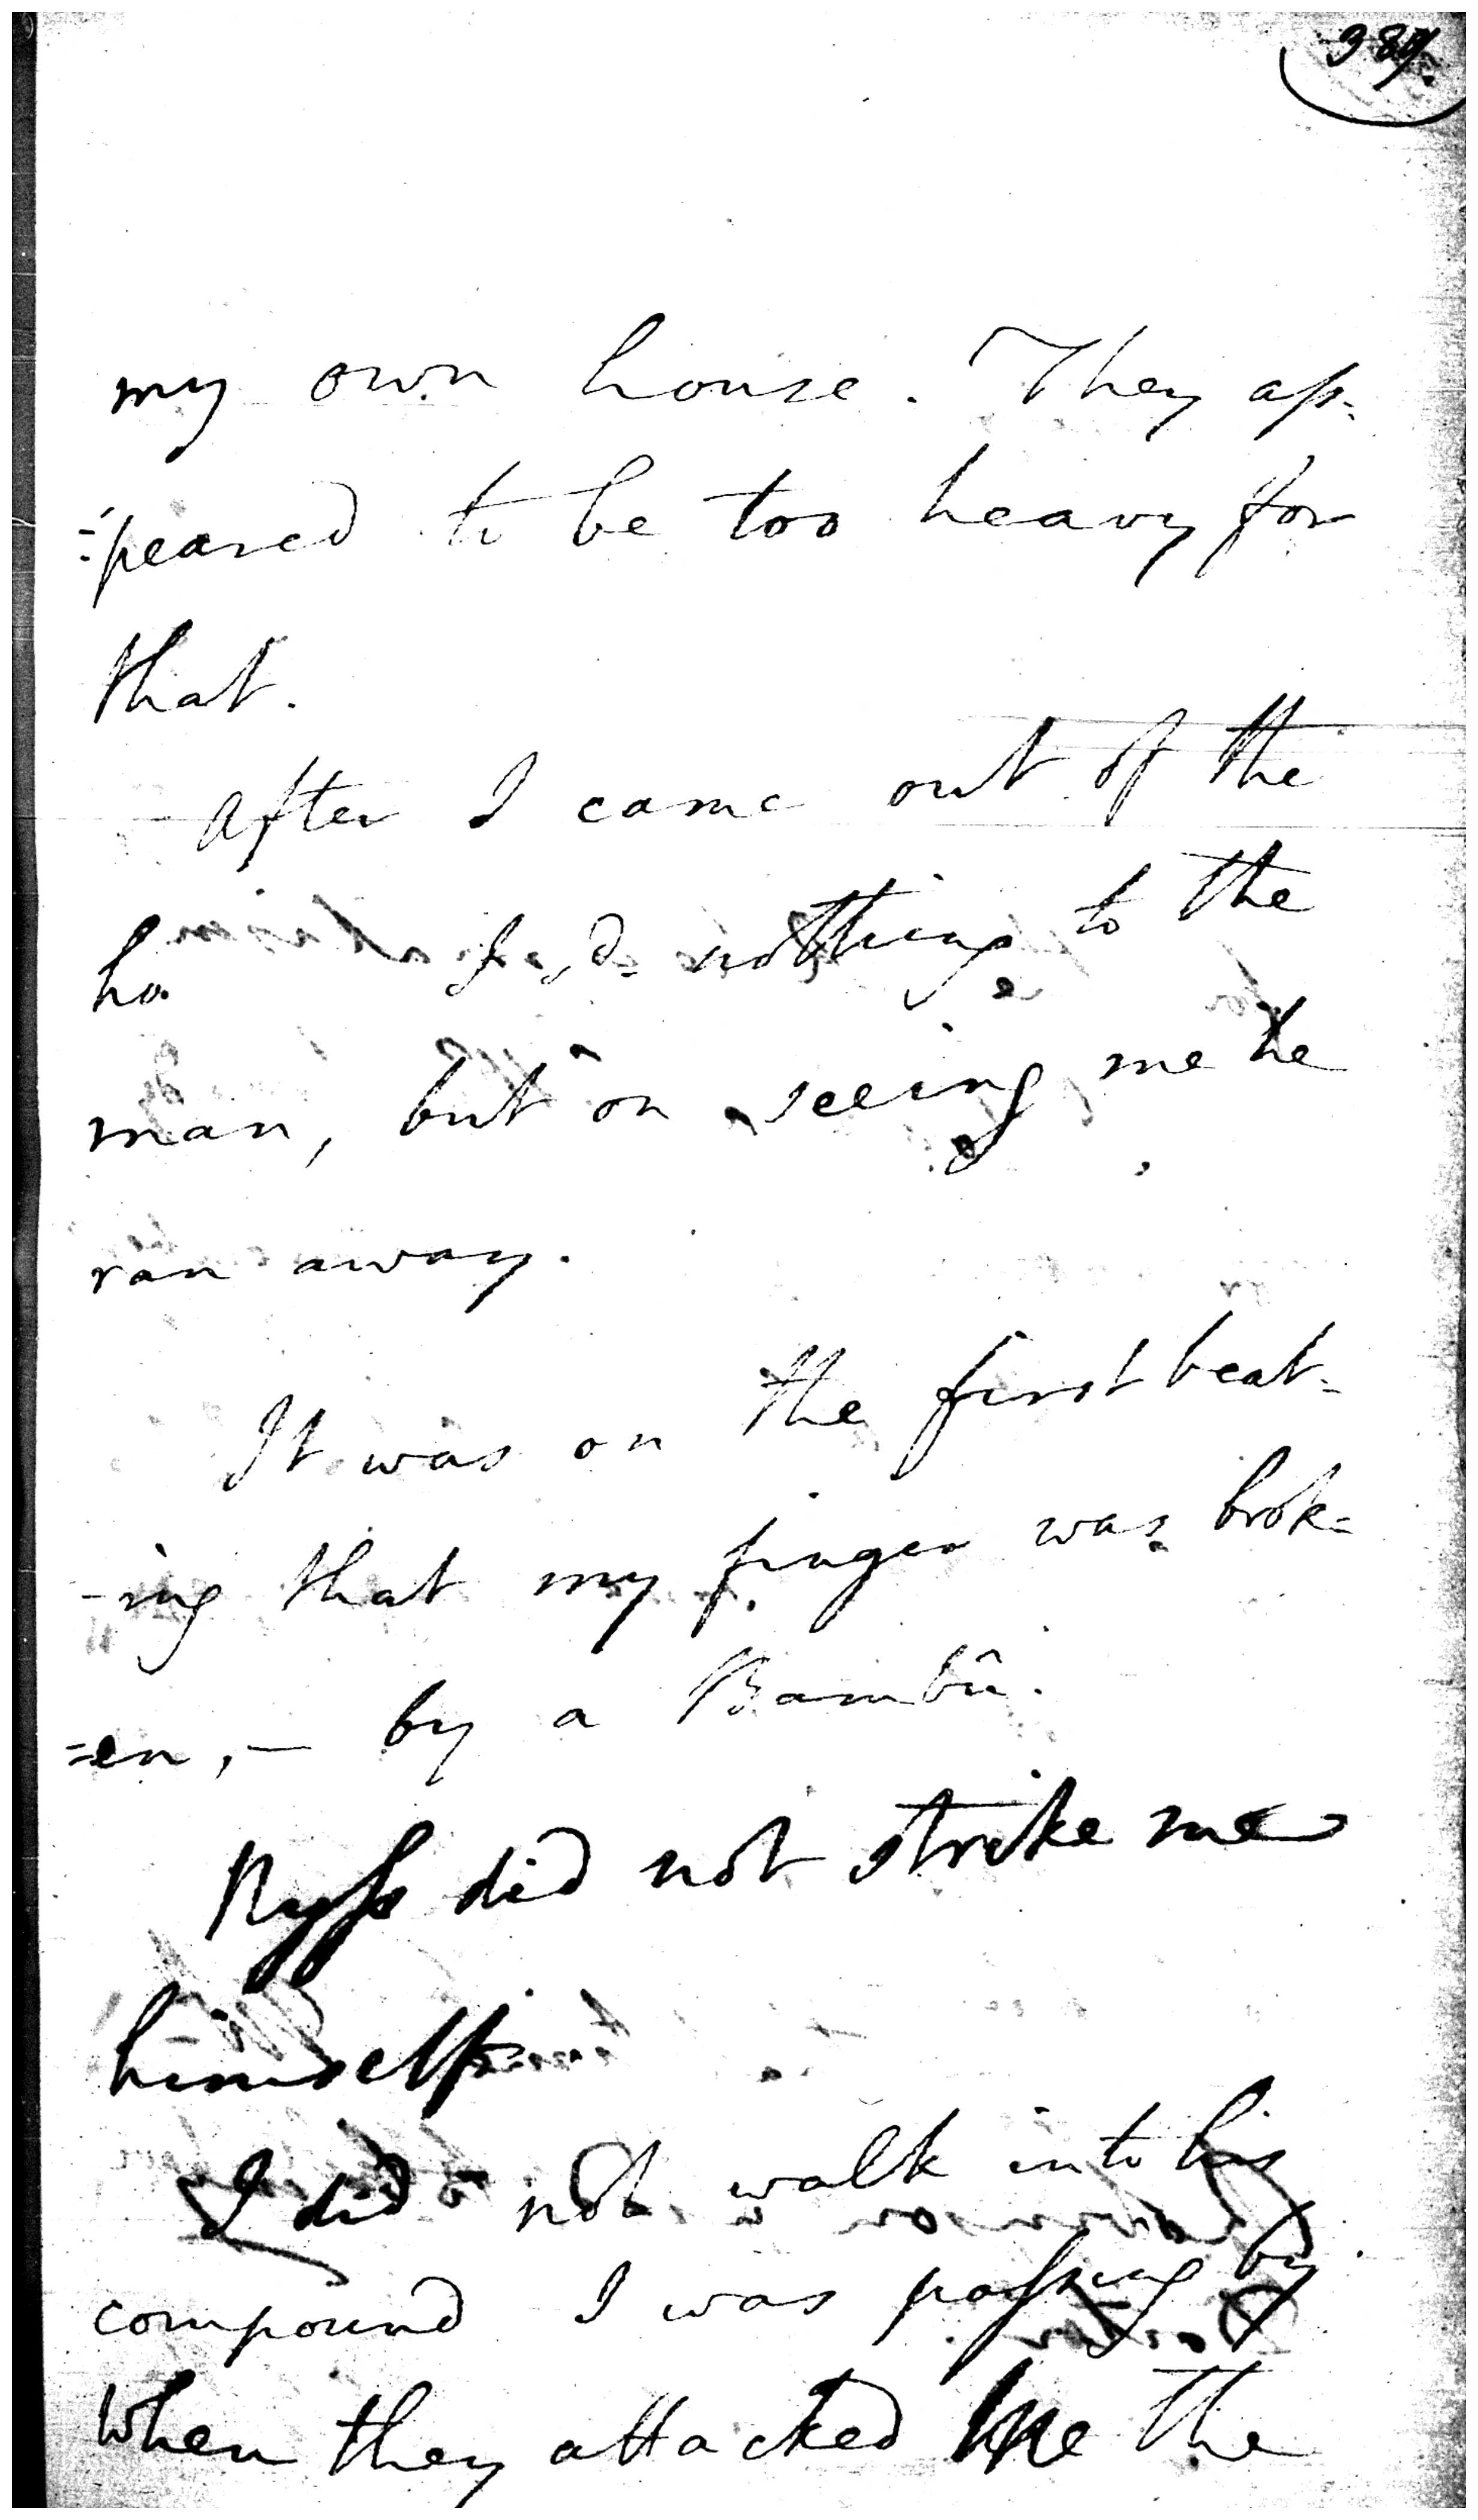 my own house. They ap-
=peared to be too heavy for
that.
After I came out of the
ho I sd. nothing to the
man, but on seeing me he
ran away.
It was on the first beat-
-ing that my finger was brok=
=en, — by a Bambû.
did not strike me
himself.
I did not walk into his
compound I was passing by
when they attacked me The